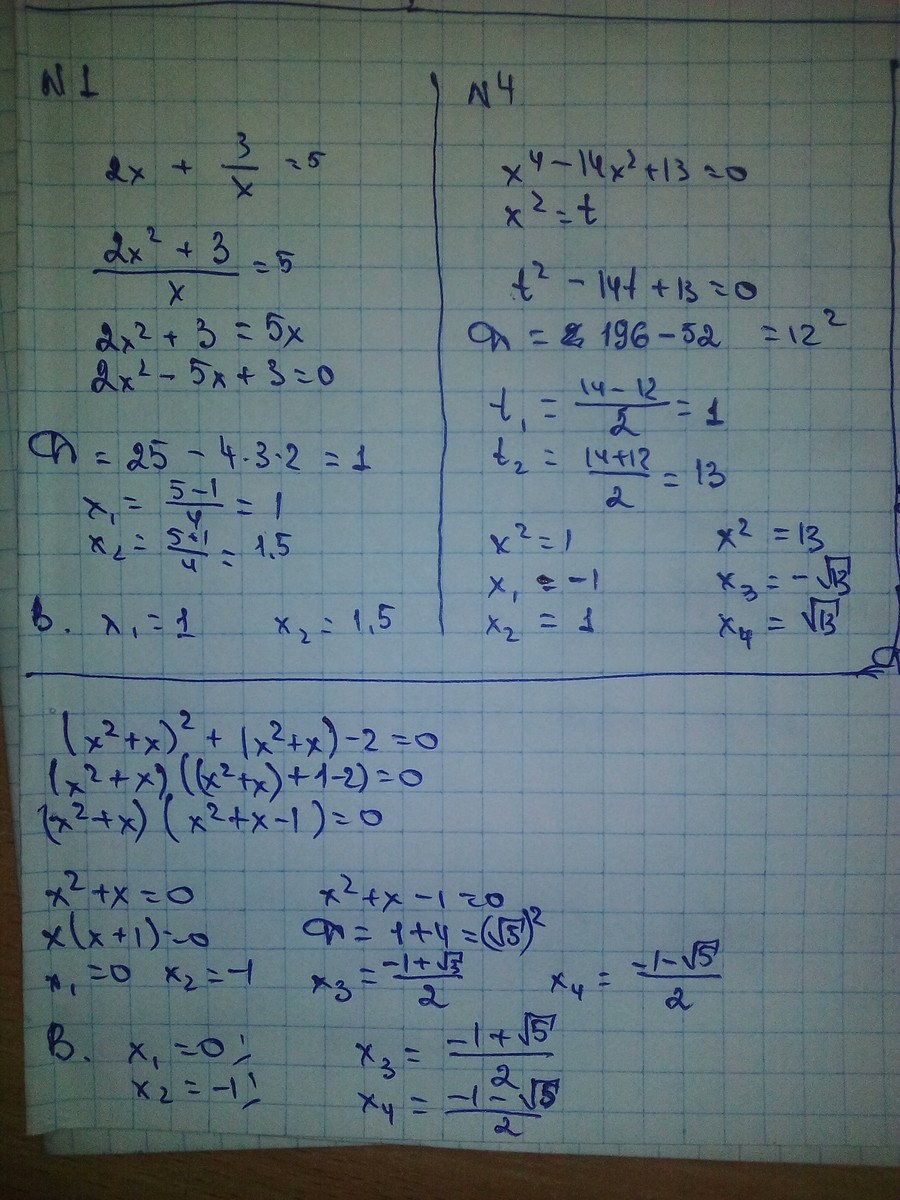 N1
2x + 3/x = 5
(2x² + 3)/x = 5
2x² + 3 = 5x
2x² - 5x + 3 = 0
D = 25 - 4·3·2 = 1
x₁ = (5-1)/4 = 1
x₂ = (5+1)/4 = 1,5
В. x₁ = 1 x₂ = 1,5
N4
x⁴ - 14x² + 13 = 0
x² = t
t² - 14t + 13 = 0
D = 196 - 52 = 12²
t₁ = (14-12)/2 = 1
t₂ = (14+12)/2 = 13
x² = 1 x² = 13
x₁ = -1 x₃ = -√13
x₂ = 1 x₄ = √13
(x²+x)² + (x²+x) - 2 = 0
(x²+x) ((x²+x) + 1-2) = 0
(x²+x) (x²+x-1) = 0
x² + x = 0 x² + x - 1 = 0
x(x+1) = 0 D = 1+4 = (√5)²
x₁ = 0 x₂ = -1 x₃ = (-1+√5)/2 x₄ = (-1-√5)/2
В. x₁ = 0; x₃ = (-1+√5)/2
x₂ = -1; x₄ = (-1-√5)/2